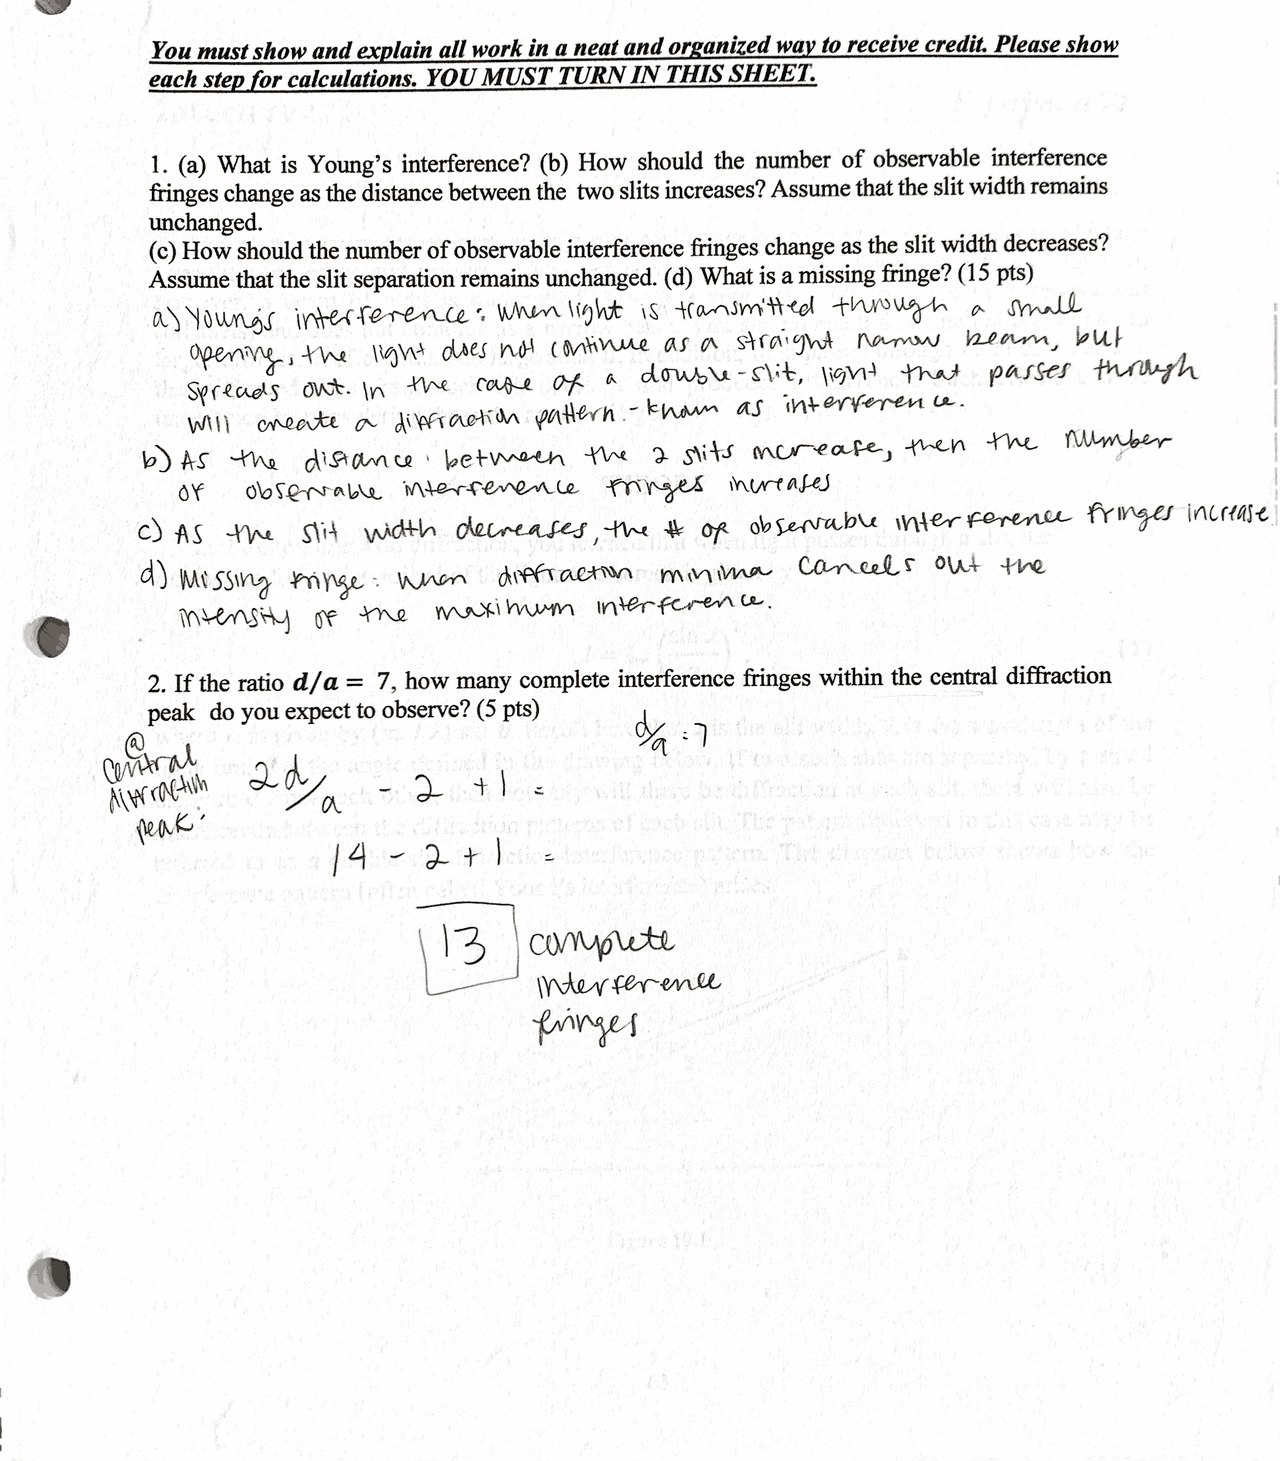 You must show and explain all work in a neat and organized way to receive credit. Please show
each step for calculations. YOU MUST TURN IN THIS SHEET.
1. (a) What is Young's interference? (b) How should the number of observable interference
fringes change as the distance between the two slits increases? Assume that the slit width remains
unchanged.
(c) How should the number of observable interference fringes change as the slit width decreases?
Assume that the slit separation remains unchanged. (d) What is a missing fringe? (15 pts)
a) Young's interference: when light is transmitted through a small
opening, the light does not continue as a straight narrow beam, but
spreads out. In the case of a double-slit, light that passes through
will create a diffraction pattern - known as interference.
b) As the distance between the 2 slits increase, then the number
of observable interference fringes increases
c) As the slit width decreases, the # of observable interference fringes increase
d) Missing fringe: when diffraction minima cancels out the
intensity of the maximum interference.
2. If the ratio d/a = 7, how many complete interference fringes within the central diffraction
peak do you expect to observe? (5 pts)
d/a = 7
@
central
diffraction
peak:
2d/a - 2 + 1 =
14 - 2 + 1 =
13 complete
interference
fringes